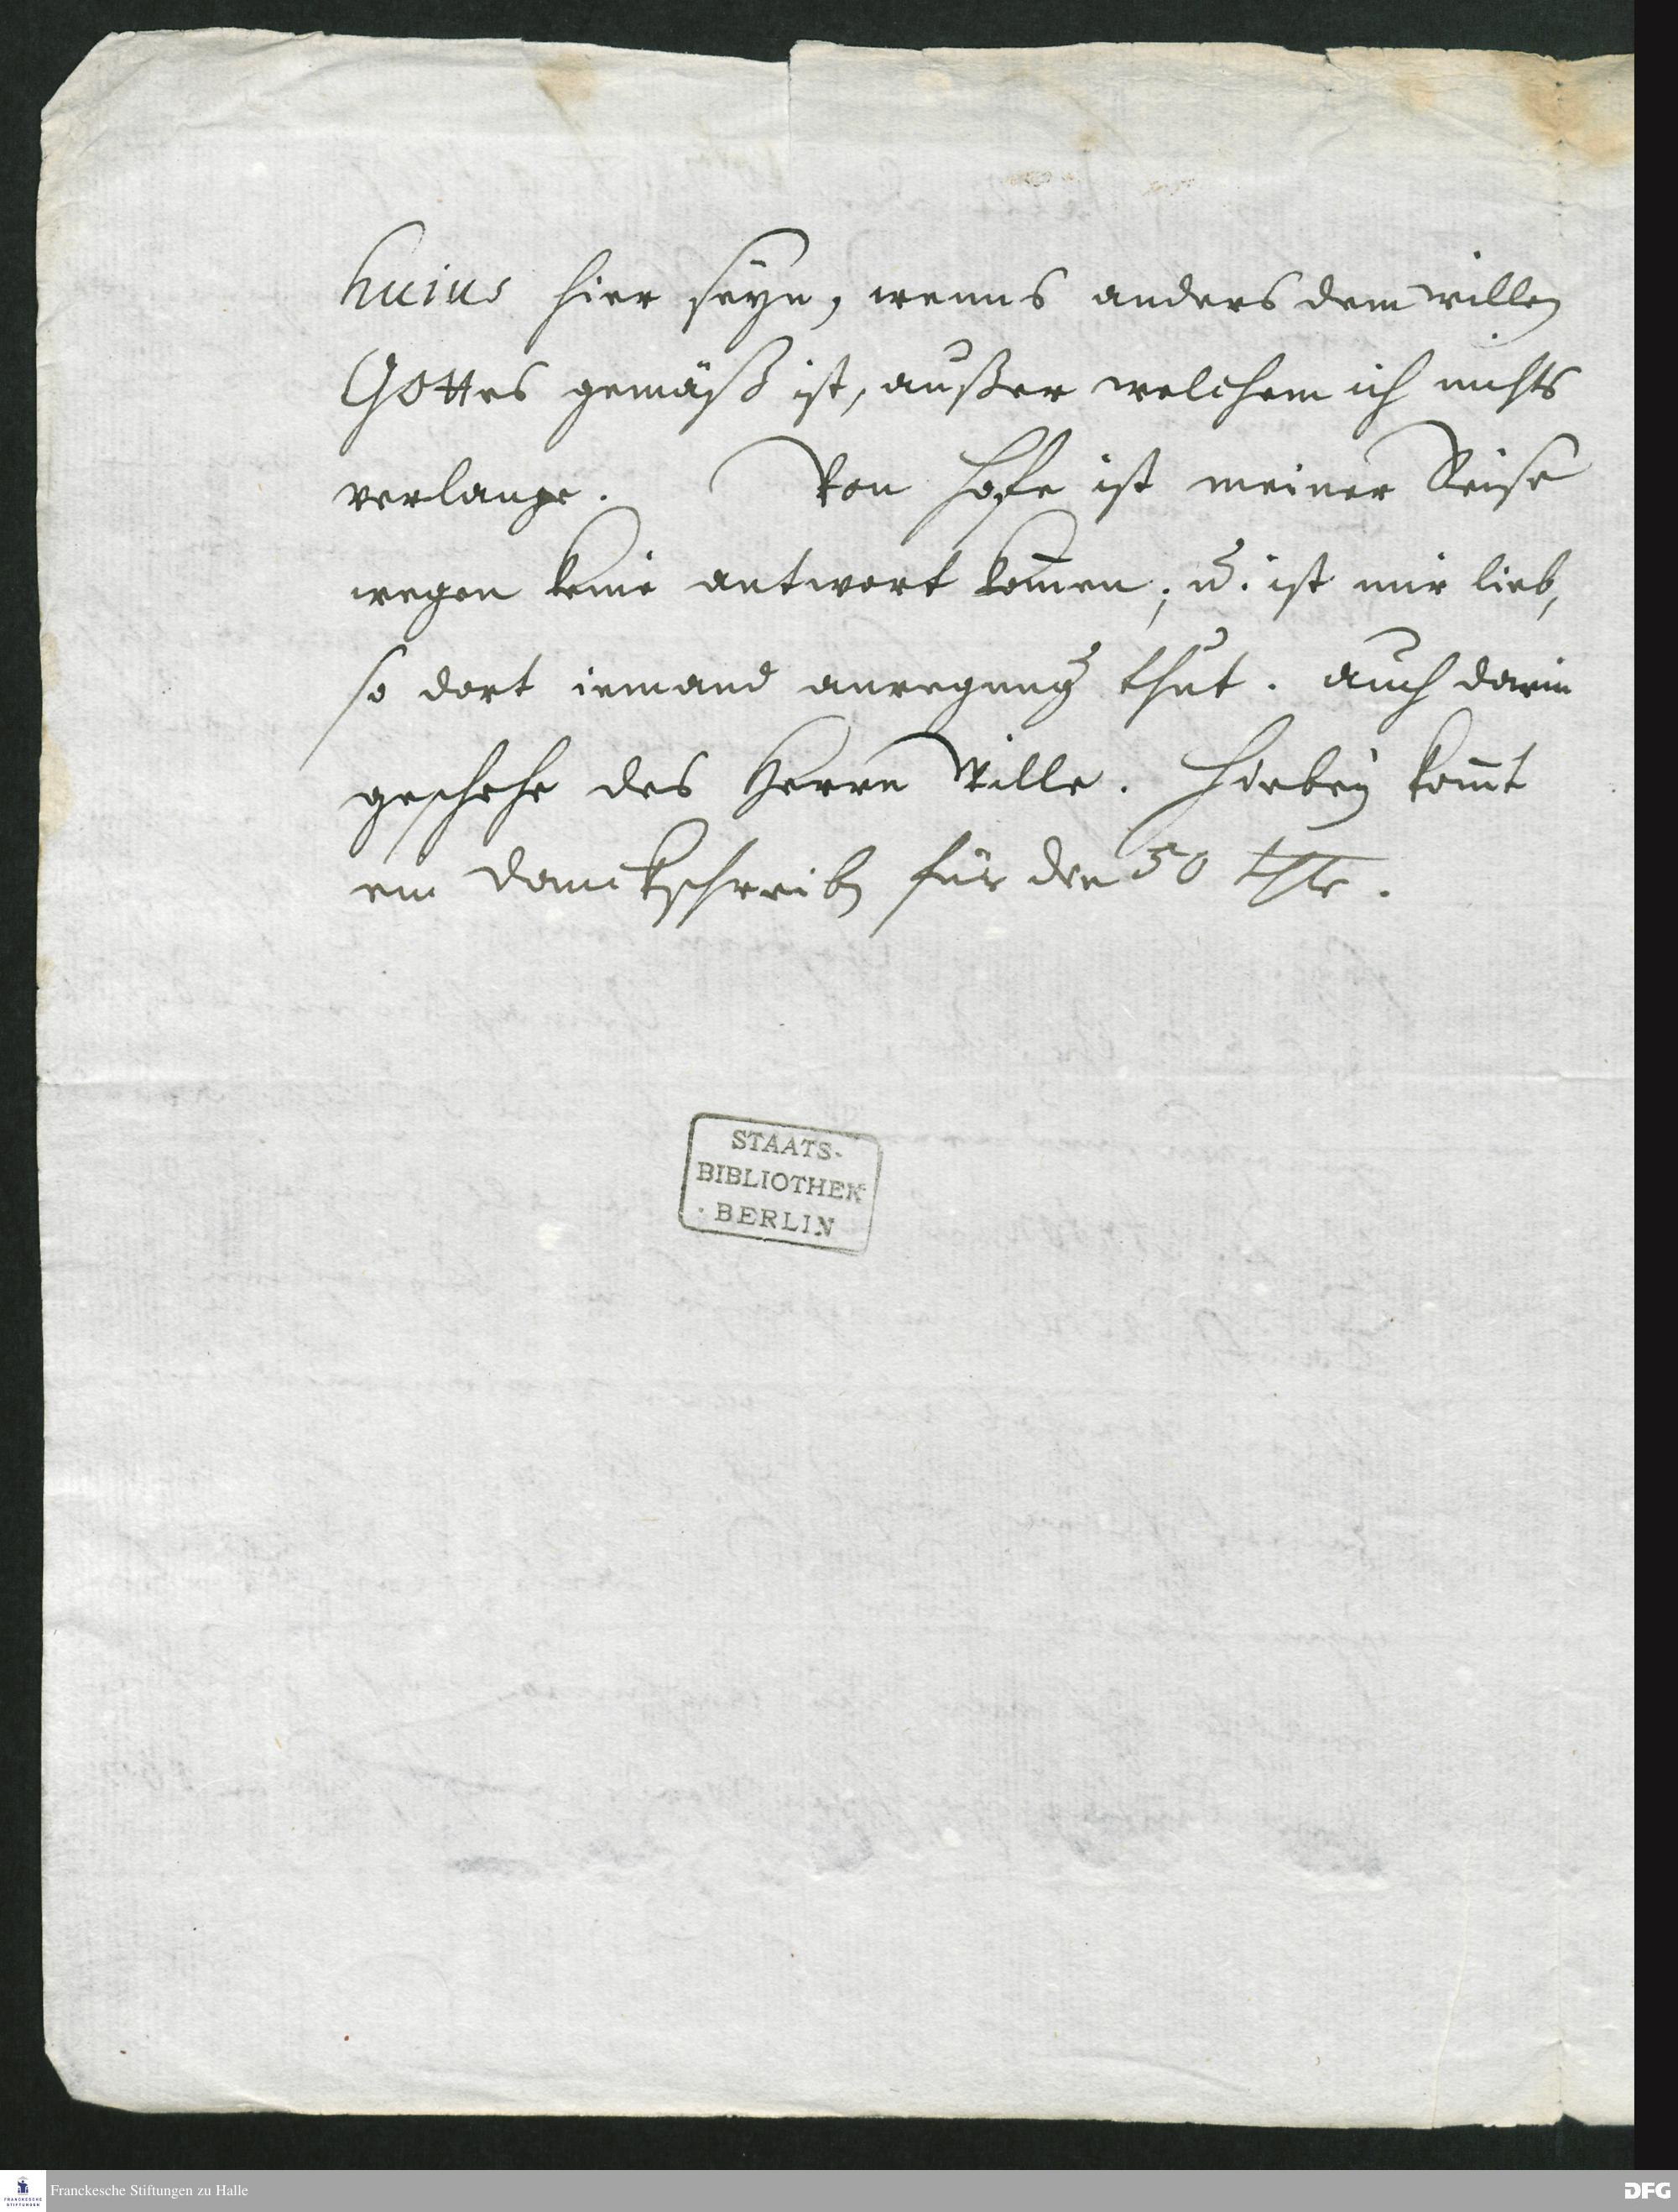 huius hier seyn, wenns anders dem willen
GOttes gemäß ist, außer welchem ich nichts
verlange. Von Hofe ist meiner Reise
wegen keine antwort kom̄en; u. ist mir lieb,
so dort iemand anregung thut. auch darin
geschehe des Herrn Wille. Hiebey kom̄t
ein danckschreiben für die 50 thlr.
STAATS-
BIBLIOTHEK
· BERLIN
FRANCKESCHE
STIFTUNGEN
Franckesche Stiftungen zu Halle
DFG